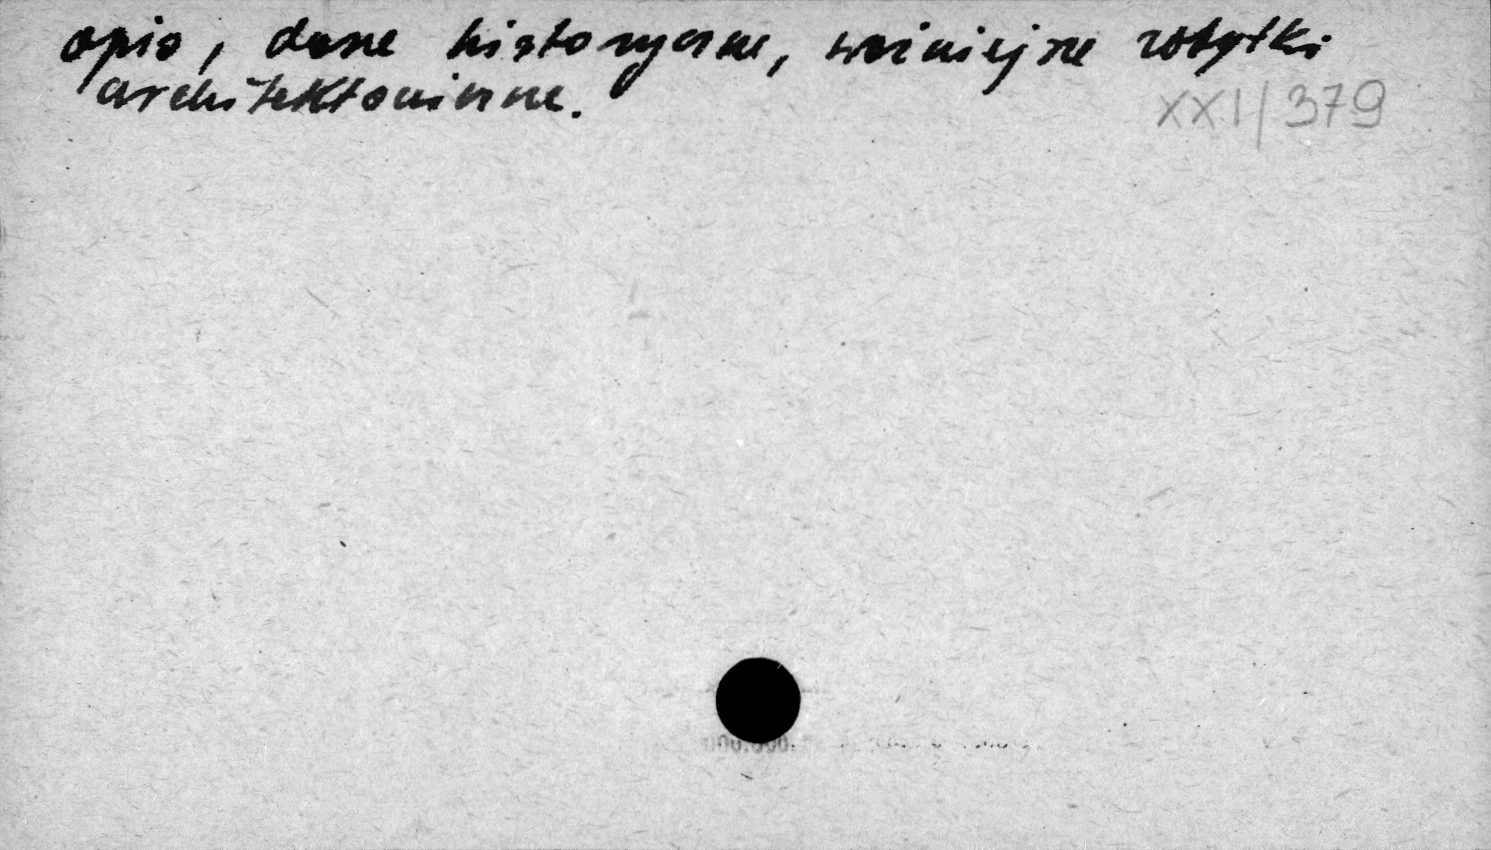 opis, dane historyczne, ważniejsze zabytki
architektoniczne.
XXI/379